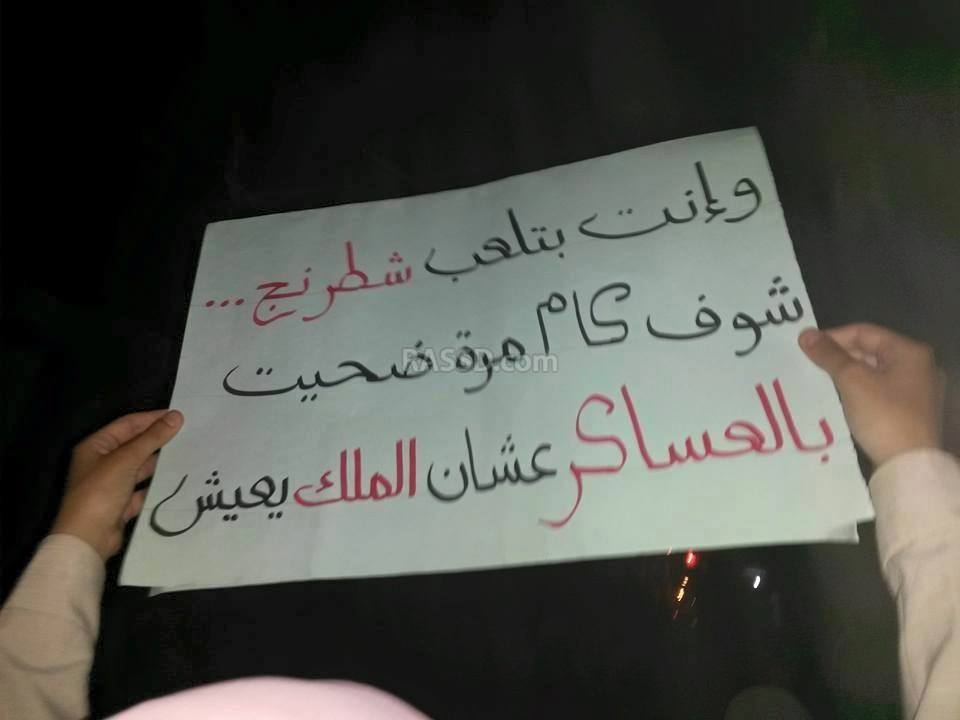 وإنت بتلعب شطرنج ...
شوف كام مرة ضحيت
بالعساكر عشان الملك يعيش
RASSD.com